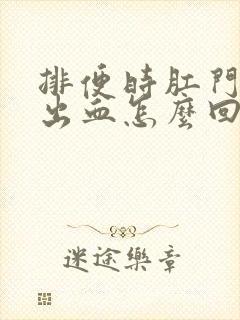 排便時肛門
出血怎麼回
迷途樂章